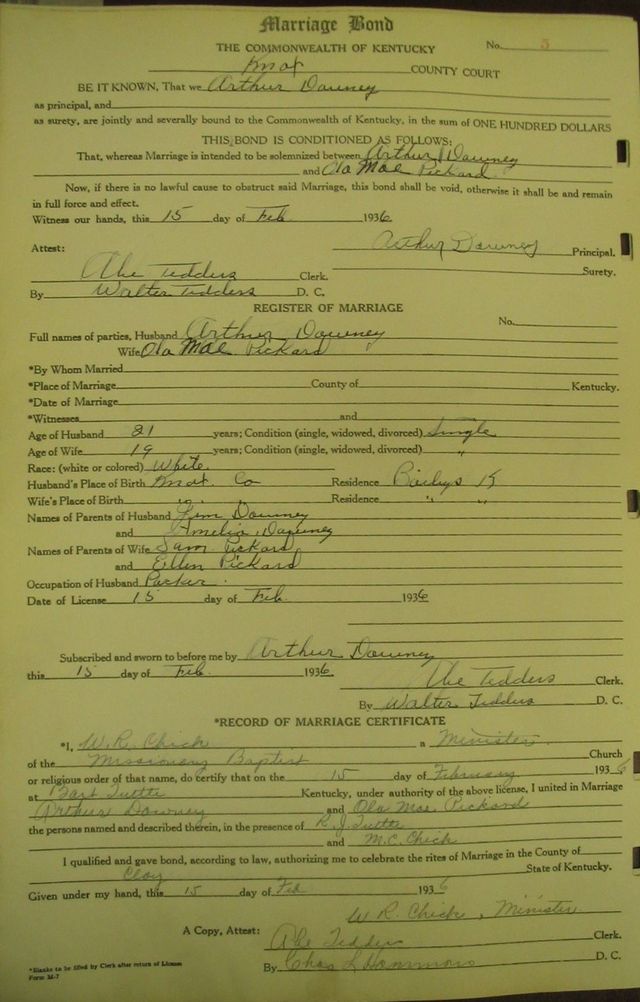 Marriage Bond
THE COMMONWEALTH OF KENTUCKY No. 5
Knox COUNTY COURT
BE IT KNOWN, That we Arthur Downey
as principal, and
as surety, are jointly and severally bound to the Commonwealth of Kentucky, in the sum of ONE HUNDRED DOLLARS
THIS BOND IS CONDITIONED AS FOLLOWS:
That, whereas Marriage is intended to be solemnized between Arthur Downey
and Ola Mae Pickard
Now, if there is no lawful cause to obstruct said Marriage, this bond shall be void, otherwise it shall be and remain
in full force and effect.
Witness our hands, this 15 day of Feb 1936
Arthur Downey Principal.
Attest:
Surety.
Abe Tedders Clerk.
By Walter Tedders D. C.
REGISTER OF MARRIAGE
No.
Full names of parties, Husband Arthur Downey
Wife Ola Mae Pickard
*By Whom Married
*Place of Marriage County of Kentucky.
*Date of Marriage
*Witnesses and
Age of Husband 21 years; Condition (single, widowed, divorced) Single
Age of Wife 19 years; Condition (single, widowed, divorced) "
Race: (white or colored) White
Husband's Place of Birth Knox Co Residence
Wife's Place of Birth " " Residence " "
Names of Parents of Husband Downey
and Amelia Downey
Names of Parents of Wife Sam Pickard
and Ellen Pickard
Occupation of Husband
Date of License 15 day of Feb. 1936
Subscribed and sworn to before me by Arthur Downey
this 15 day of Feb. 1936.
Abe Tedders Clerk.
By Walter Tedders D. C.
*RECORD OF MARRIAGE CERTIFICATE
*I, W. R. Chick a Minister
of the Missionary Baptist Church
or religious order of that name, do certify that on the 15 day of February 1936
at Tuttle Kentucky, under authority of the above license, I united in Marriage
Arthur Downey and Ola Mae Pickard
the persons named and described therein, in the presence of R. J. Tuttle
and M. C. Chick
I qualified and gave bond, according to law, authorizing me to celebrate the rites of Marriage in the County of
Clay State of Kentucky.
Given under my hand, this 15 day of Feb 1936
W R. Chick, Minister
A Copy, Attest: Abe Tedders Clerk.
By Chas L Hammons D. C.
*Blanks to be filled by Clerk after return of License
Form M-7